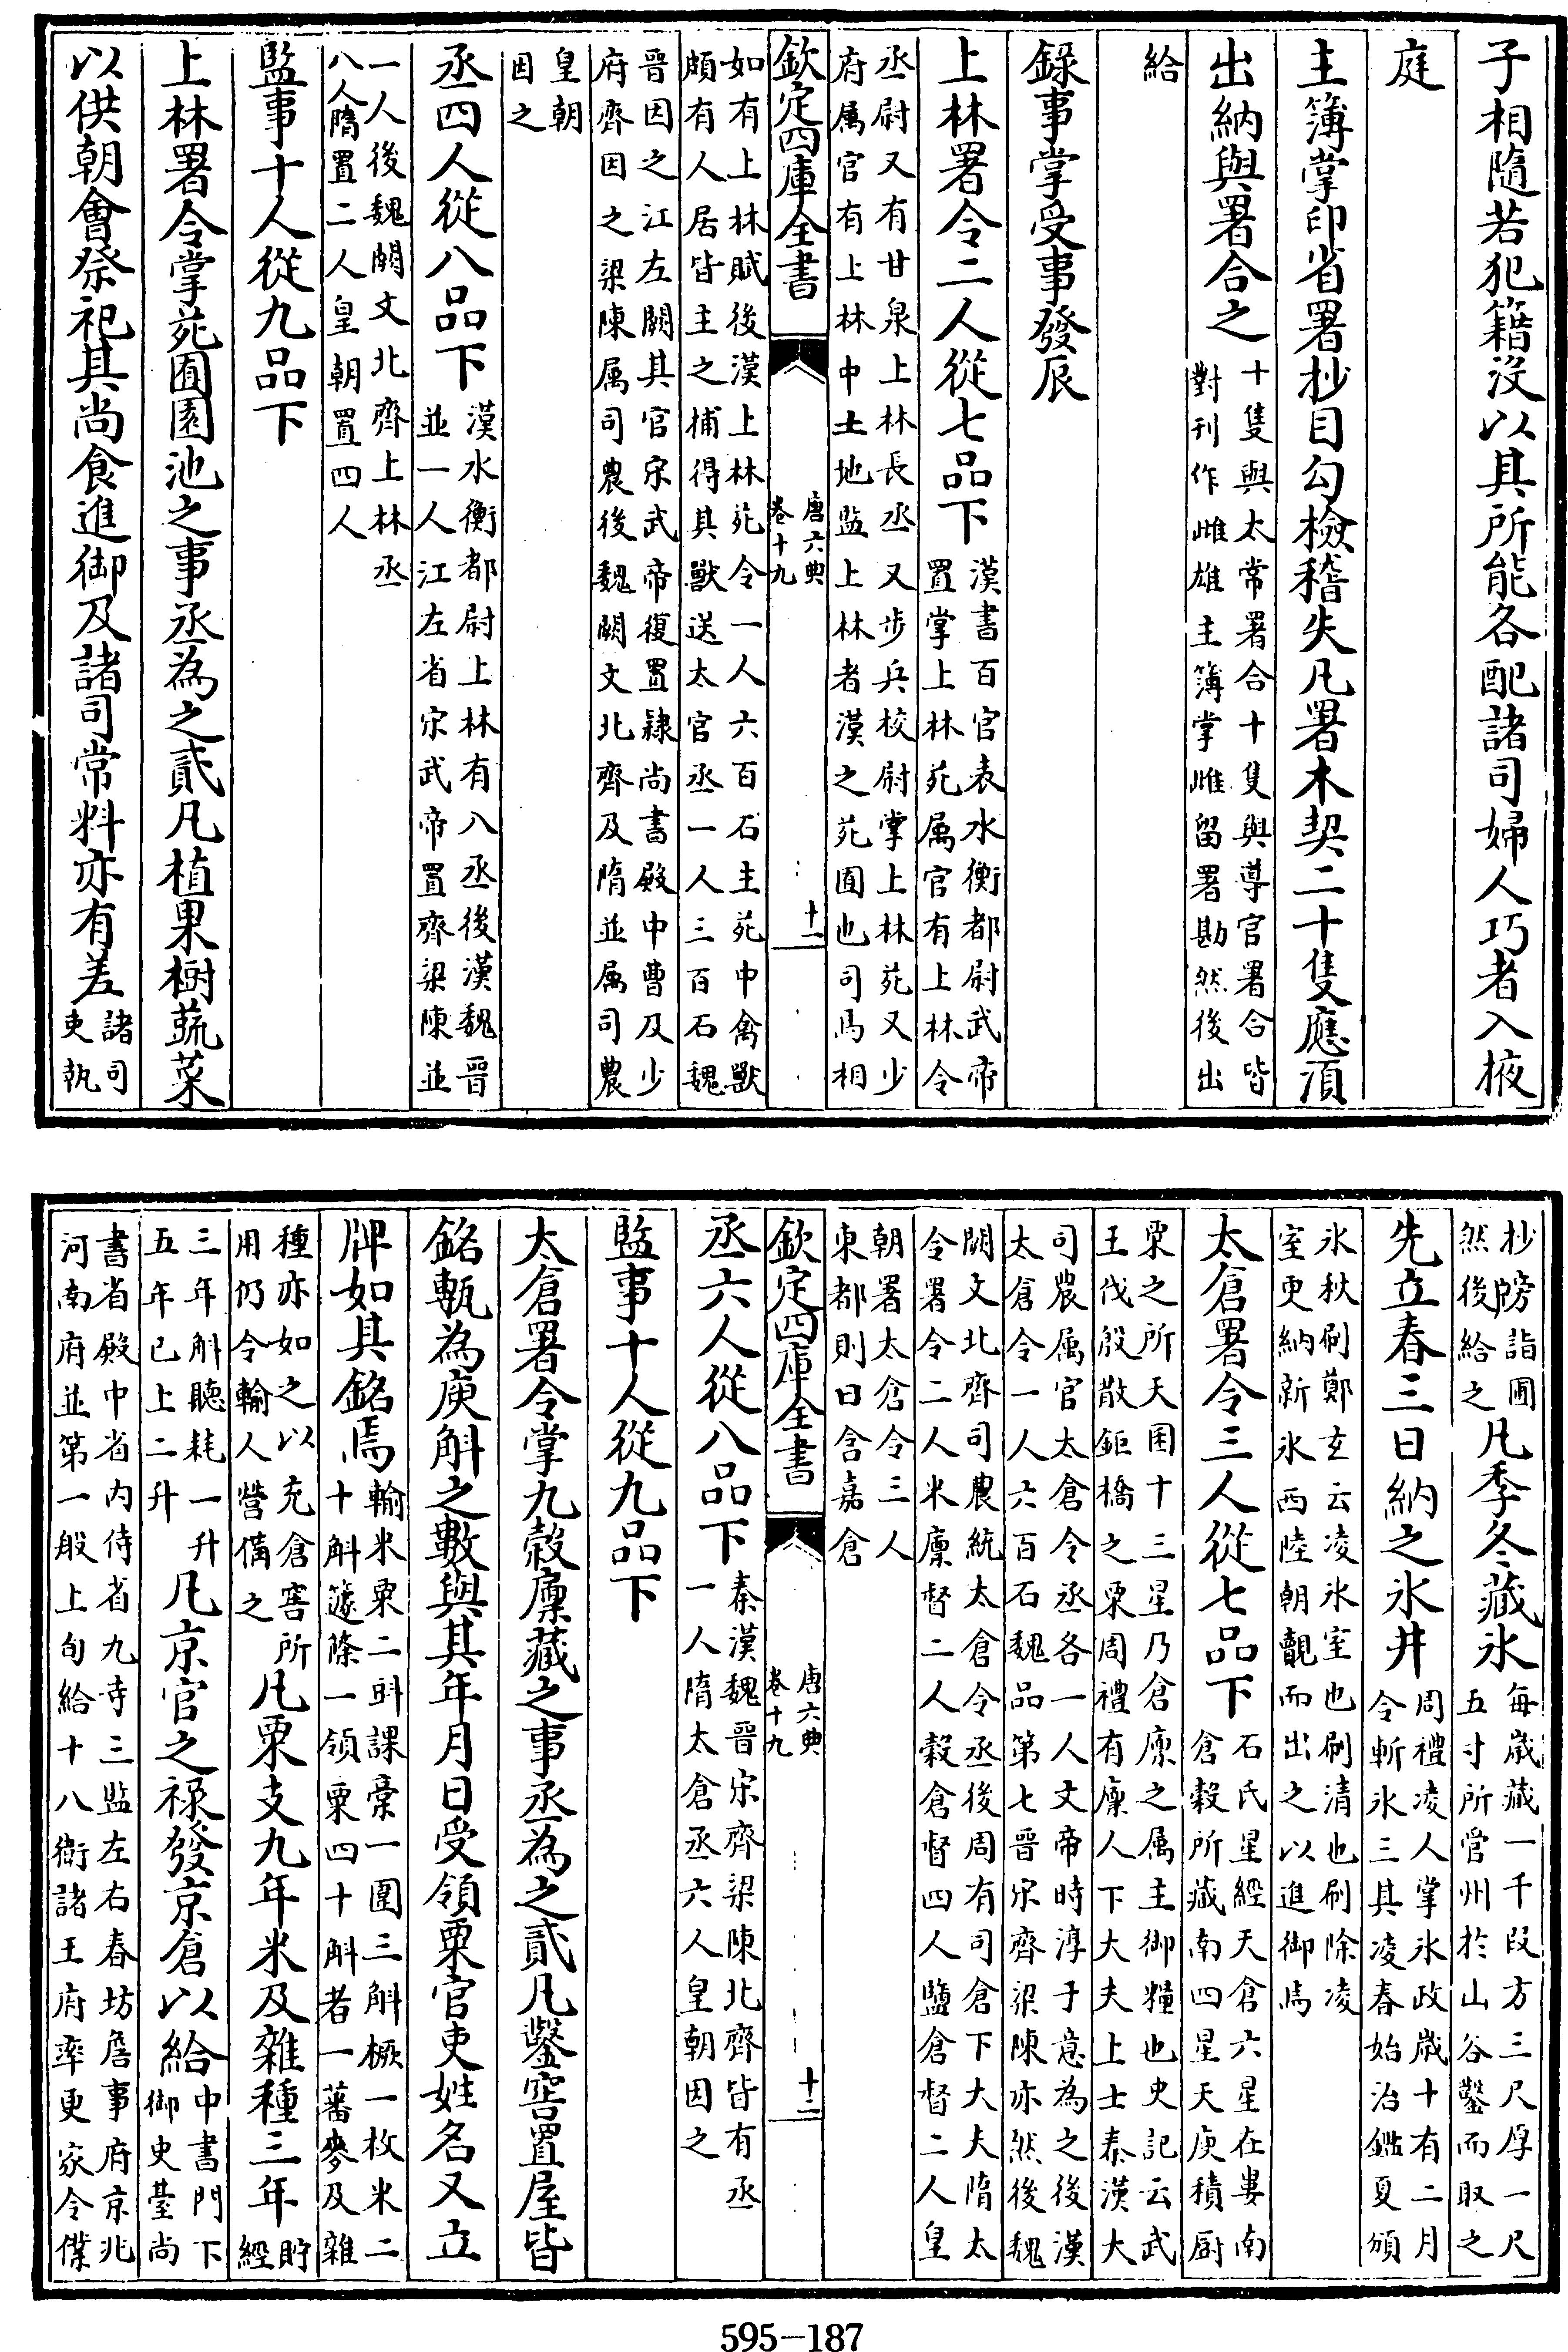 子相隨若犯籍沒以其所能各配諸司婦人巧者入掖
庭
主簿掌印省署抄目勾檢稽失凡署木契二十隻應須
出納與署合之十隻與太常署合十隻與導官署合皆
對刊作雌雄主簿掌雌留署勘然後出
給
錄事掌受事發辰
上林署令二人從七品下漢書百官表水衡都尉武帝
置掌上林苑属官有上林令
丞尉又有甘泉上林長丞又步兵校尉掌上林苑又少
府属官有上林中土地监上林者漢之苑囿也司馬相
欽定四庫全書
唐六典
卷十九
十一
如有上林賦後漢上林苑令一人六百石主苑中禽獸
頗有人居皆主之捕得其獸送太官丞一人三百石魏
晉因之江左闕其官宋武帝復置隸尚書殿中曹及少
府齊因之梁陳属司農後魏闕文北齊及隋並属司農
皇朝
因之
丞四人從八品下漢水衡都尉上林有八丞後漢魏晉
並一人江左省宋武帝置齊梁陳並
一人後魏闕文北齊上林丞
八人隋置二人皇朝置四人
監事十人從九品下
上林署令掌苑囿園池之事丞為之貳凡植果樹蔬菜
以供朝會祭祀其尚食進御及諸司常料亦有差諸司
吏執
抄牓詣圃
然後給之凡季冬藏冰每歲藏一千段方三尺厚一尺
五寸所管州於山谷鑿而取之
先立春三日納之冰井周禮凌人掌氷政歲十有二月
令斬氷三其凌春始治鑑夏頒
氷秋刷鄭玄云凌氷室也刷清也刷除凌
室更納新氷西陸朝覿而出之以進御焉
太倉署令三人從七品下石氏星經天倉六星在婁南
倉穀所藏南四星天庾積厨
粟之所天囷十三星乃倉廪之属主御糧也史記云武
王伐殷散鉅橋之粟周禮有廩人下大夫上士秦漢大
司農属官太倉令丞各一人文帝時淳于意為之後漢
太倉令一人六百石魏品第七晉宋齊梁陳亦然後魏
闕文北齊司農統太倉令丞後周有司倉下大夫隋太
令署令二人米廩督二人穀倉督四人鹽倉督二人皇
朝署太倉令三人
東都則曰含嘉倉
欽定四庫全書
唐六典
卷十九
十二
丞六人從八品下秦漢魏晉宋齊梁陳北齊皆有丞
一人隋太倉丞六人皇朝因之
監事十人從九品下
太倉署令掌九穀廩藏之事丞為之貳凡鑿窖置屋皆
銘甎為庾斛之數與其年月日受領粟官吏姓名又立
牌如其銘焉輸米粟二㪷課稾一圍三斛橛一枚米二
十斛籧篨一領粟四十斛者一蕃麥及雜
種亦如之以充倉窖所
用仍令輸人營備之凡粟支九年米及雜種三年貯
經
三年斛聽耗一升
五年已上二升凡京官之祿發京倉以給中書門下
御史臺尚
書省殿中省内侍省九寺三監左右春坊詹事府京兆
河南府並第一般上旬給十八衛諸王府率更家令僕
595-187